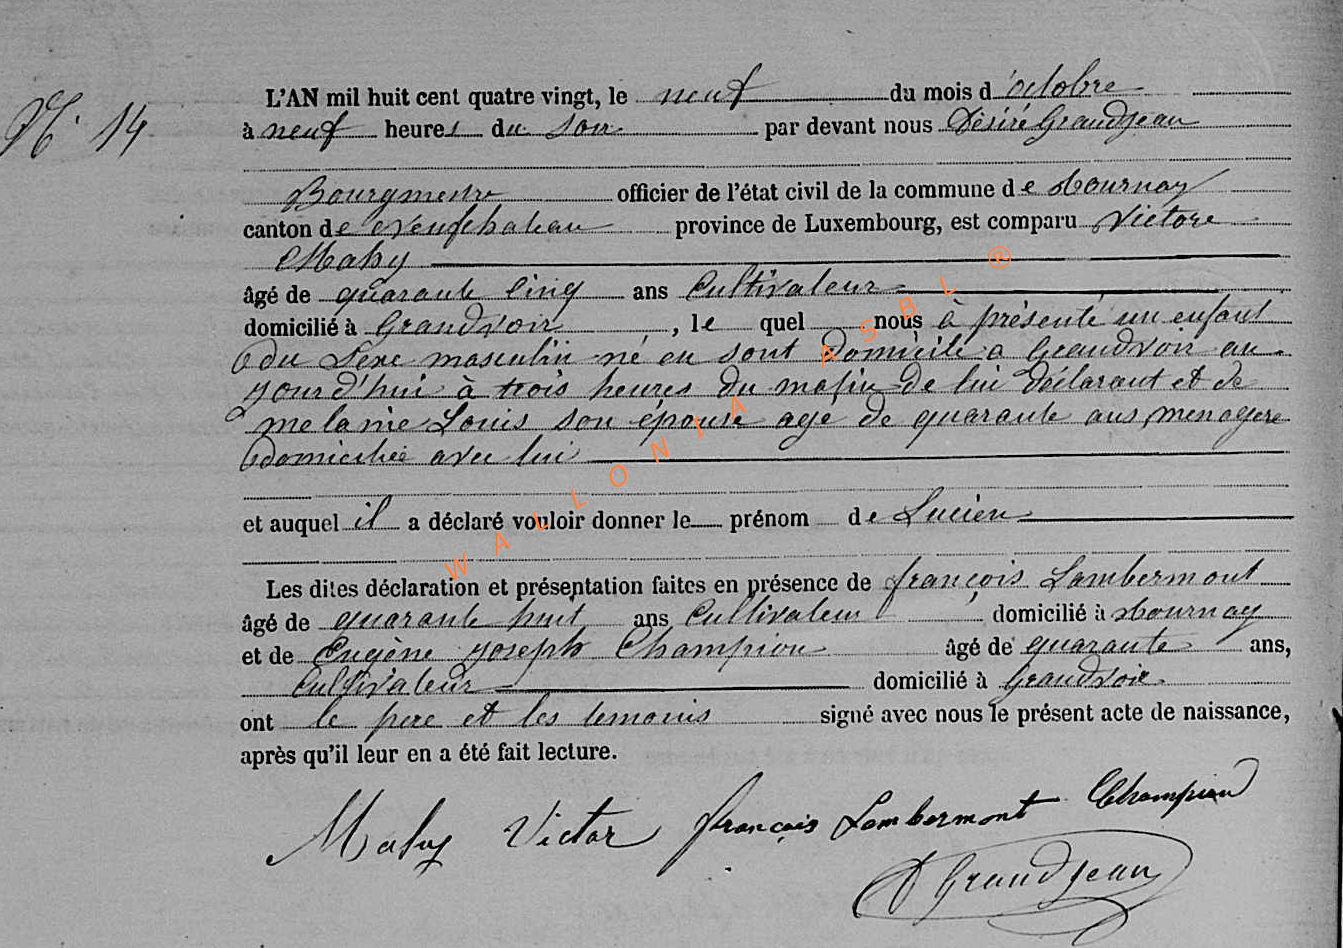 N° 14
L'AN mil huit cent quatre vingt, le neuf du mois d'octobre
à neuf heures du soir par devant nous Désiré Grandjean
Bourgmestre officier de l'état civil de la commune de Tournay
canton de Neufchateau province de Luxembourg, est comparu Victore
Mahy
âgé de quarante cinq ans Cultivateur
domicilié à Grandvoir, le quel nous à présenté un enfant
du Sexe masculin né en sont Domicile a Grandvoir au
jourd'hui à trois heures du matin de lui Déclarant et de
melanie Louis son épouse age de quarante ans, menagere
domiciliée avec lui
et auquel il a déclaré vouloir donner le prénom de Lucien
Les dites déclaration et présentation faites en présence de françois Lambermont
âgé de quarante huit ans Cultivateur domicilié à Tournay
et de Eugène Joseph Champion âgé de quarante ans,
Cultivateur domicilié à Grandvoir
ont le pere et les temoins signé avec nous le présent acte de naissance,
après qu'il leur en a été fait lecture.
Mahy Victor françois Lambermont Champion
D Grandjean
WALLONIA ASBL ®